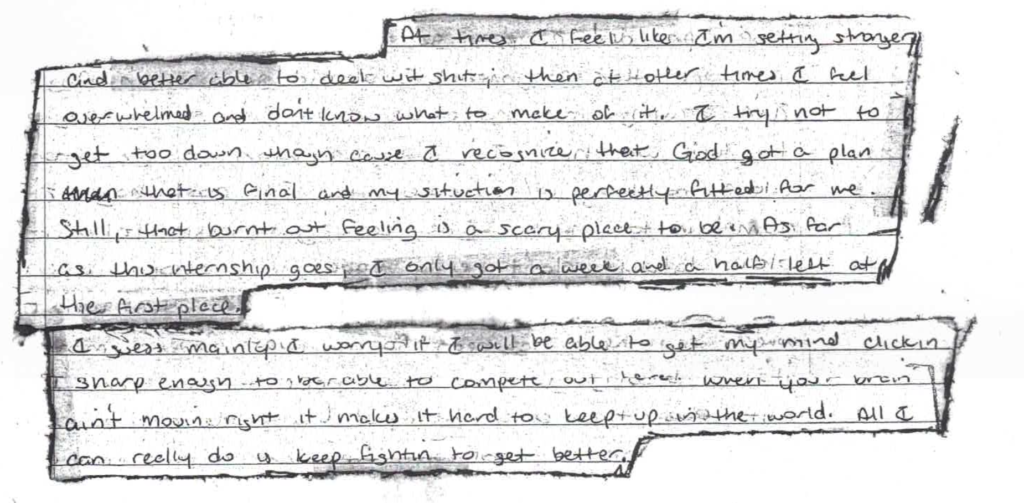 At times I feel like I'm getting stronger
and better able to deal wit shit, then at other times I feel
overwhelmed and don't know what to make of it. I try not to
get too down though cause I recognize that God got a plan
that is final and my situation is perfectly fitted for me.
Still, that burnt out feeling is a scary place to be. As far
as this internship goes, I only got a week and a half left at
the first place.
I guess mainly I worry if I will be able to get my mind clickin
sharp enough to be able to compete out here. When your brain
ain't movin right it makes it hard to keep up in the world. All I
can really do is keep fightin to get better.